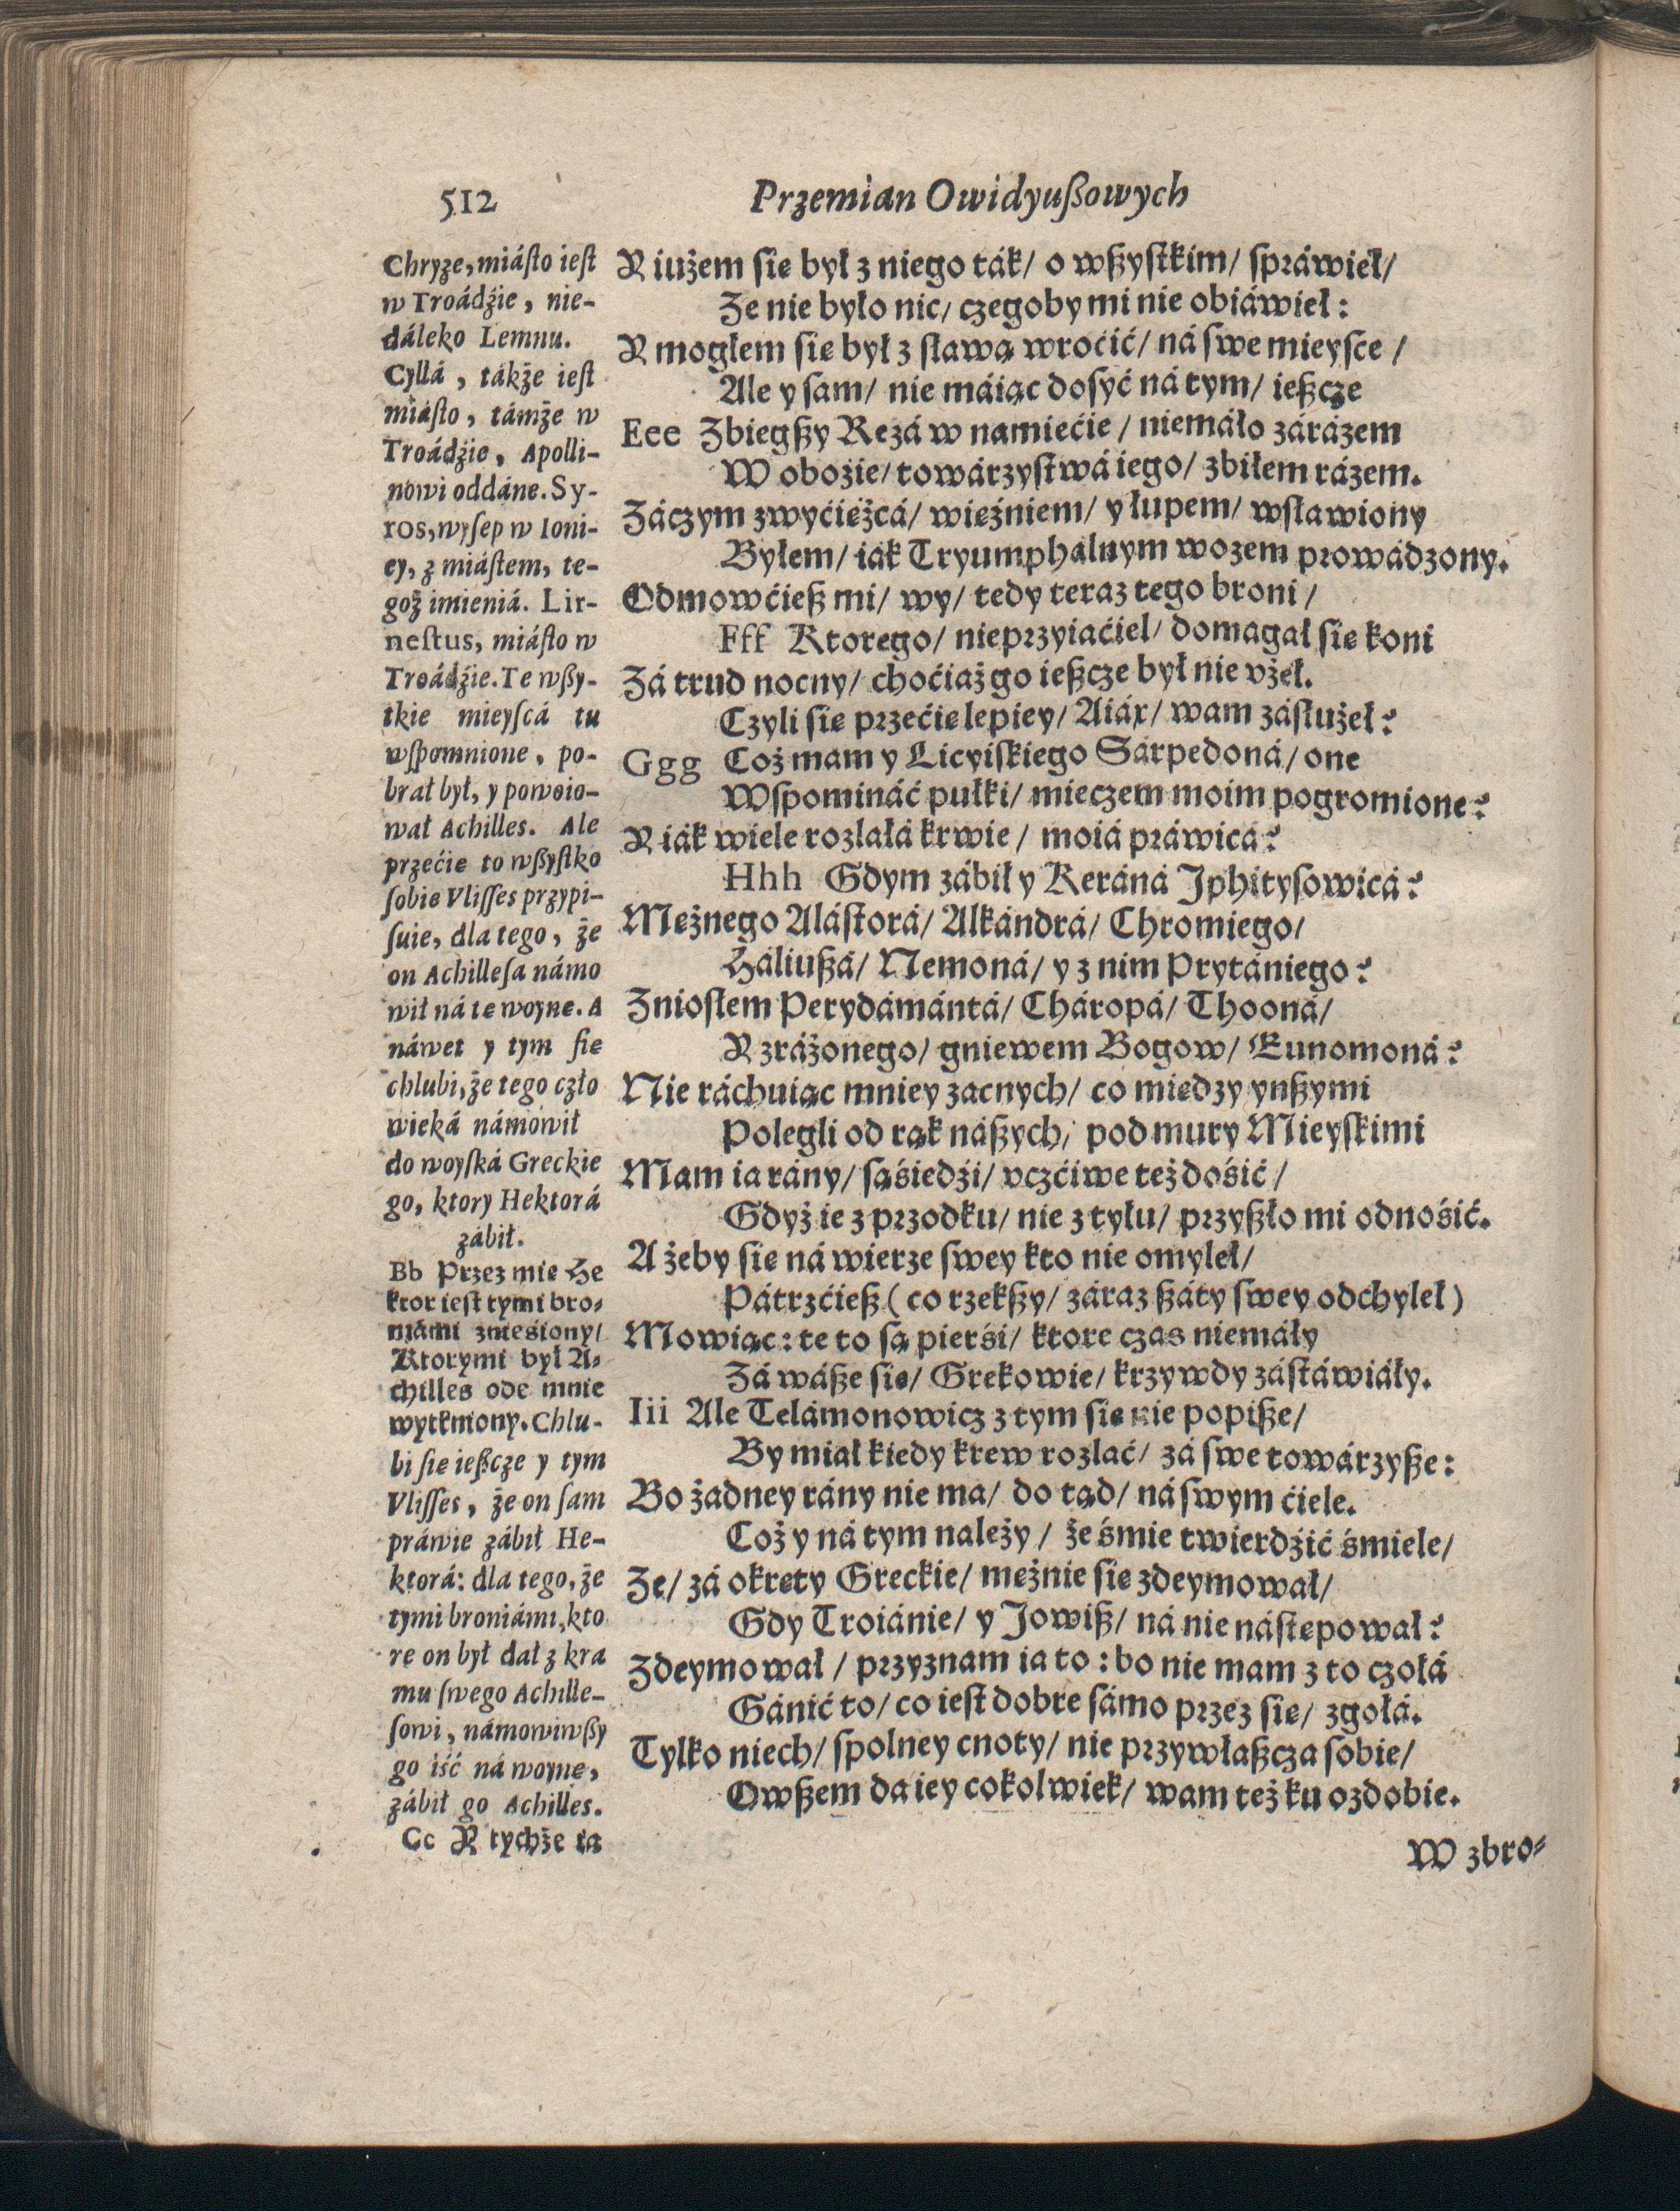 512
Przemian Owidyußowych
Chryze, miásto iest
w Troádźie, nie-
dáleko Lemnu.
Cyllá, tákże iest
miásto, támże w
Troádźie, Apolli-
nowi oddáne. Sy-
ros, wysep w Ioni-
ey, z miástem, te-
goż imieniá. Lir-
nestus, miásto w
Troádźie. Te wßy-
tkie mieyscá tu
wspomnione, po-
brał był, y powoio-
wał Achilles. Ale
przećie to wßystko
sobie Vlisses przypi-
suie, dla tego, że
on Achillesa námo
wił ná te woyne. A
náwet y tym sie
chlubi, że tego czło
wieká námowił
do woyská Greckie
go, ktory Hektorá
zábił.
Bb Przez mie He
ktor iest tymi bro-
niámi zniesiony/
Ktorymi był A-
chilles ode mnie
wytkniony. Chlu-
bi sie ießcze y tym
Vlisses, że on sam
práwie zábił He-
ktorá: dla tego, że
tymi broniámi, kto
re on był dał z kra
mu swego Achille-
sowi, námowiwßy
go iść ná woyne,
zábił go Achilles.
Cc Y tychże ta
Y iużem sie był z niego ták/ o wßystkim/ spráwieł/
Ze nie było nic/ czegoby mi nie obiáwieł:
Y mogłem sie był z sławą wroćić/ ná swe mieysce/
Ale y sam/ nie máiąc dosyć ná tym/ ießcze
Eee Zbiegßy Rezá w namiećie/ niemáło zárázem
W obozie/ towárzystwá iego/ zbiłem rázem.
Záczym zwyćiężcá/ wieźniem/ y łupem/ wsławiony
Byłem/ iák Tryumphálnym wozem prowádzony.
Odmowćieß mi/ wy/ tedy teraz tego broni/
Fff Ktorego/ nieprzyiaćiel/ domagał sie koni
Zá trud nocny/ choćiaż go ießcze był nie vżeł.
Czyli sie przećie lepiey/ Aiáx/ wam zásłużeł?
Ggg Coż mam y Licyiskiego Sárpedoná/ one
Wspomináć pułki/ mieczem moim pogromione?
Y iák wiele rozlałá krwie/ moiá práwicá?
Hhh Gdym zábił y Keráná Jphitysowicá?
Meżnego Alástorá/ Alkándrá/ Chromiego/
Háliußá/ Nemoná/ y z nim Prytániego?
Zniosłem Perydámántá/ Cháropá/ Thooná/
Y zráżonego/ gniewem Bogow/ Eunomoná?
Nie ráchuiąc mniey zacnych/ co miedzy ynßymi
Polegli od rąk náßych/ pod mury Mieyskimi
Mam ia rány/ sąśiedźi/ vczćiwe też dośić/
Gdyż ie z przodku/ nie z tyłu/ przyßło mi odnośić.
A żeby sie ná wierze swey kto nie omyleł/
Pátrzćieß (co rzekßy/ záraz ßáty swey odchyleł)
Mowiąc: te to są pierśi/ ktore czas niemáły
Zá wáße sie/ Grekowie/ krzywdy zástáwiáły.
Iii Ale Telámonowicz z tym sie nie popiße/
By miał kiedy krew rozlać/ zá swe towárzyße:
Bo żadney rány nie ma/ do tąd/ ná swym ćiele.
Coż y ná tym należy/ że śmie twierdźić śmiele/
Ze/ zá okrety Greckie/ meżnie sie zdeymował/
Gdy Troiánie/ y Jowiß/ ná nie nástepował?
Zdeymował/ przyznam ia to: bo nie mam z to czołá
Gánić to/ co iest dobre sámo przez sie/ zgołá.
Tylko niech/ spolney cnoty/ nie przywłaßcza sobie/
Owßem da iey cokolwiek/ wam też ku ozdobie.
W zbro-